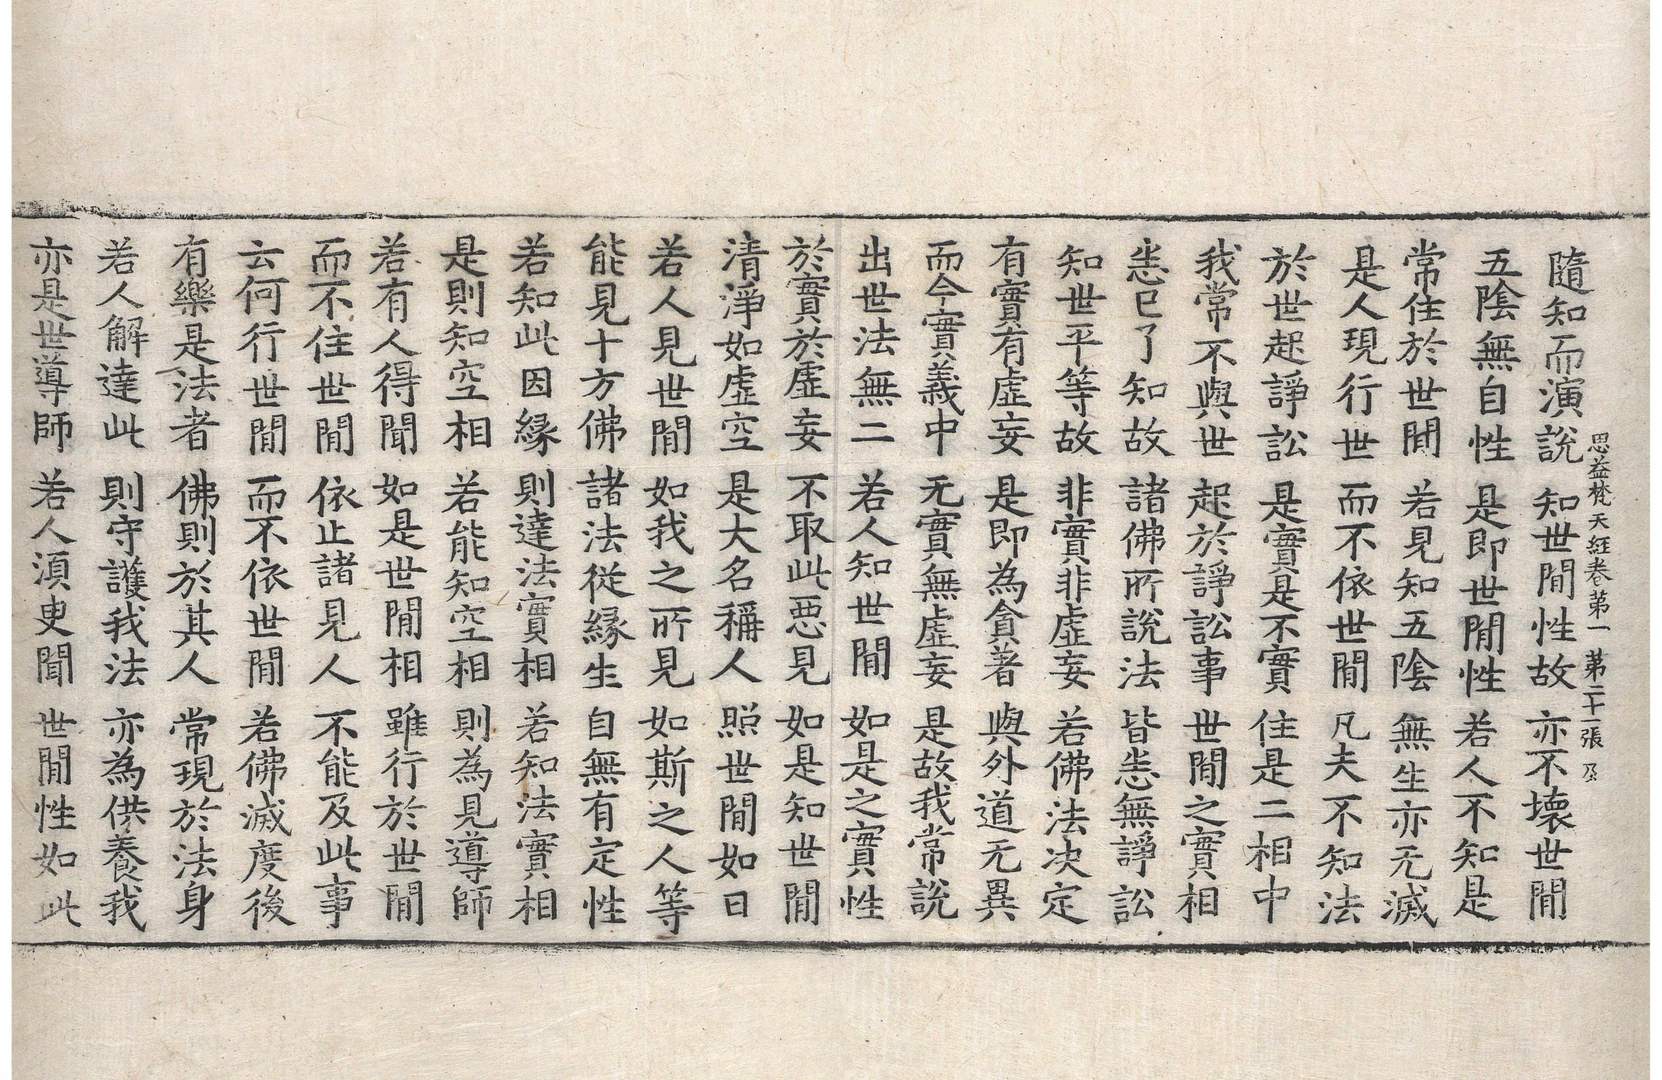 思益梵天經卷第一 第二十一張
隨知而演說 知世間性故 亦不壞世間
五陰無自性 是即世間性 若人不知是
常住於世間 若見知五陰 無生亦无滅
是人現行世 而不依世間 凡夫不知法
於世起諍訟 是實是不實 住是二相中
我常不與世 起於諍訟事 世間之實相
悉已了知故 諸佛所說法 皆悉無諍訟
知世平等故 非實非虛妄 若佛法決定
有實有虛妄 是即為貪著 與外道无異
而今實義中 无實無虛妄 是故我常說
出世法無二 若人知世間 如是之實性
於實於虛妄 不取此惡見 如是知世間
清淨如虛空 是大名稱人 照世間如日
若人見世間 如我之所見 如斯之人等
能見十方佛 諸法從緣生 自無有定性
若知此因緣 則達法實相 若知法實相
是則知空相 若能知空相 則為見導師
若有人得聞 如是世間相 雖行於世間
而不住世間 依止諸見人 不能及此事
云何行世間 而不依世間 若佛滅度後
有樂是法者 佛則於其人 常現於法身
若人解達此 則守護我法 亦為供養我
亦是世導師 若人須臾聞 世間性如此